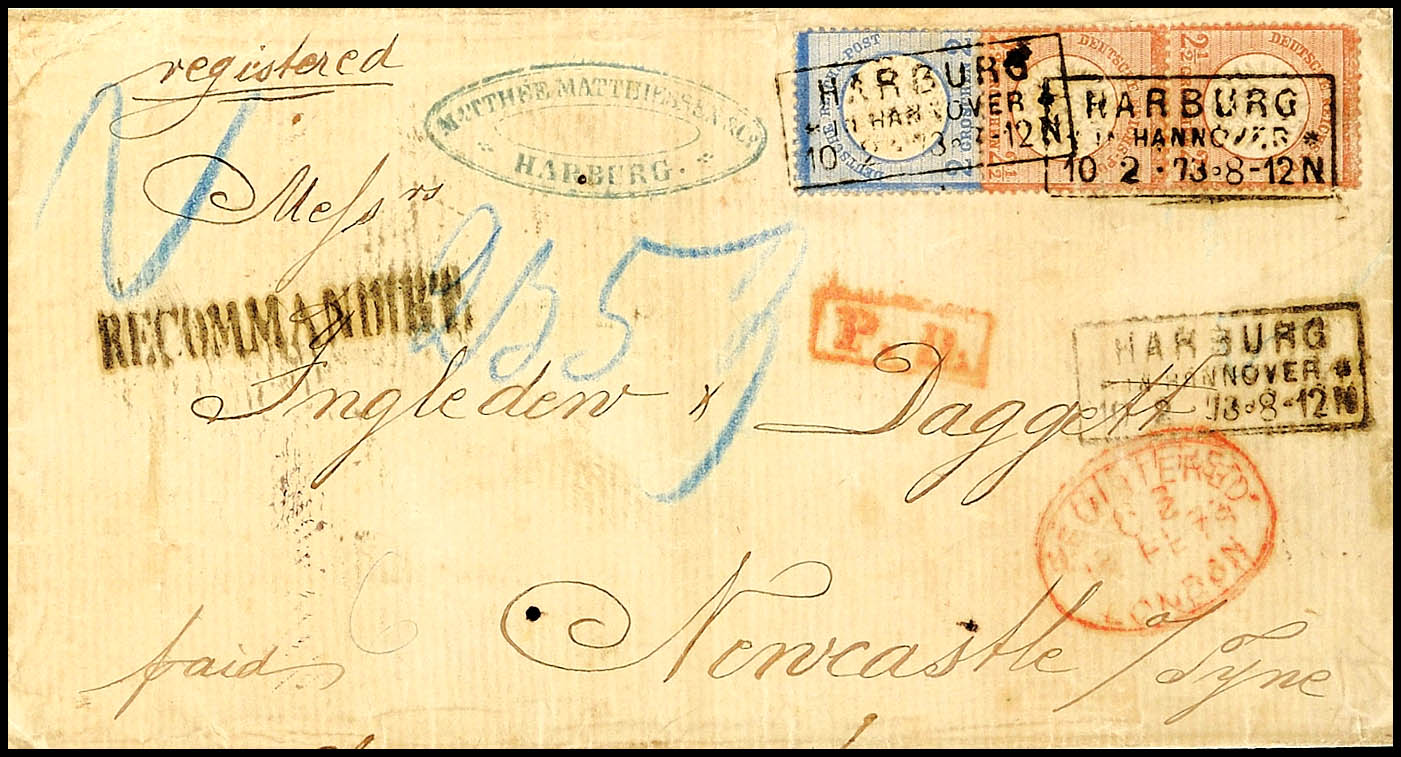 registered
MATTHÉE MATTHIESSEN & Co.
* HARBURG. *
DEUTSCHE REICHS-POST
2 GROSCHEN 2
HARBURG
IN HANNOVER *
10 2 73 8-12N
HARBURG
IN HANNOVER *
10 2 . 73 . 8-12N
Messrs
RECOMMANDIRT.
P.D.
HARBURG
IN HANNOVER *
10 2 73 . 8-12N
Ingledew & Daggett
REGISTERED
12 FE 73
LONDON
Newcastle a/Tyne
paid